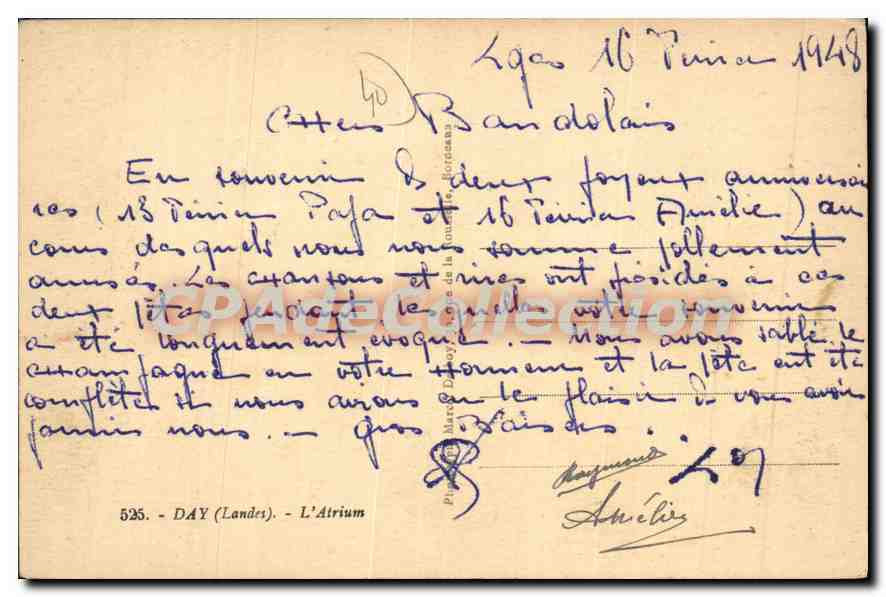 16 Février 1948
40
Chers Bandolais
En souvenir de deux joyeux anniversai
res (13 Février Papa et 16 Février Amélie) au
cours desquels nous nous somme follement
amusés. Les chansons et rires ont présidés à ces
deux fêtes pendant lesquelles votre souvenir
a été longuement évoqué. — Nous avons sablé le
champagne en votre honneur et la fête eut été
complète si nous avions eu le plaisir de vous avoir
parmi nous. — Gros Baisers.
Raymond
Amélie
525. - DAY (Landes). - L'Atrium
CPAdeCollection.com